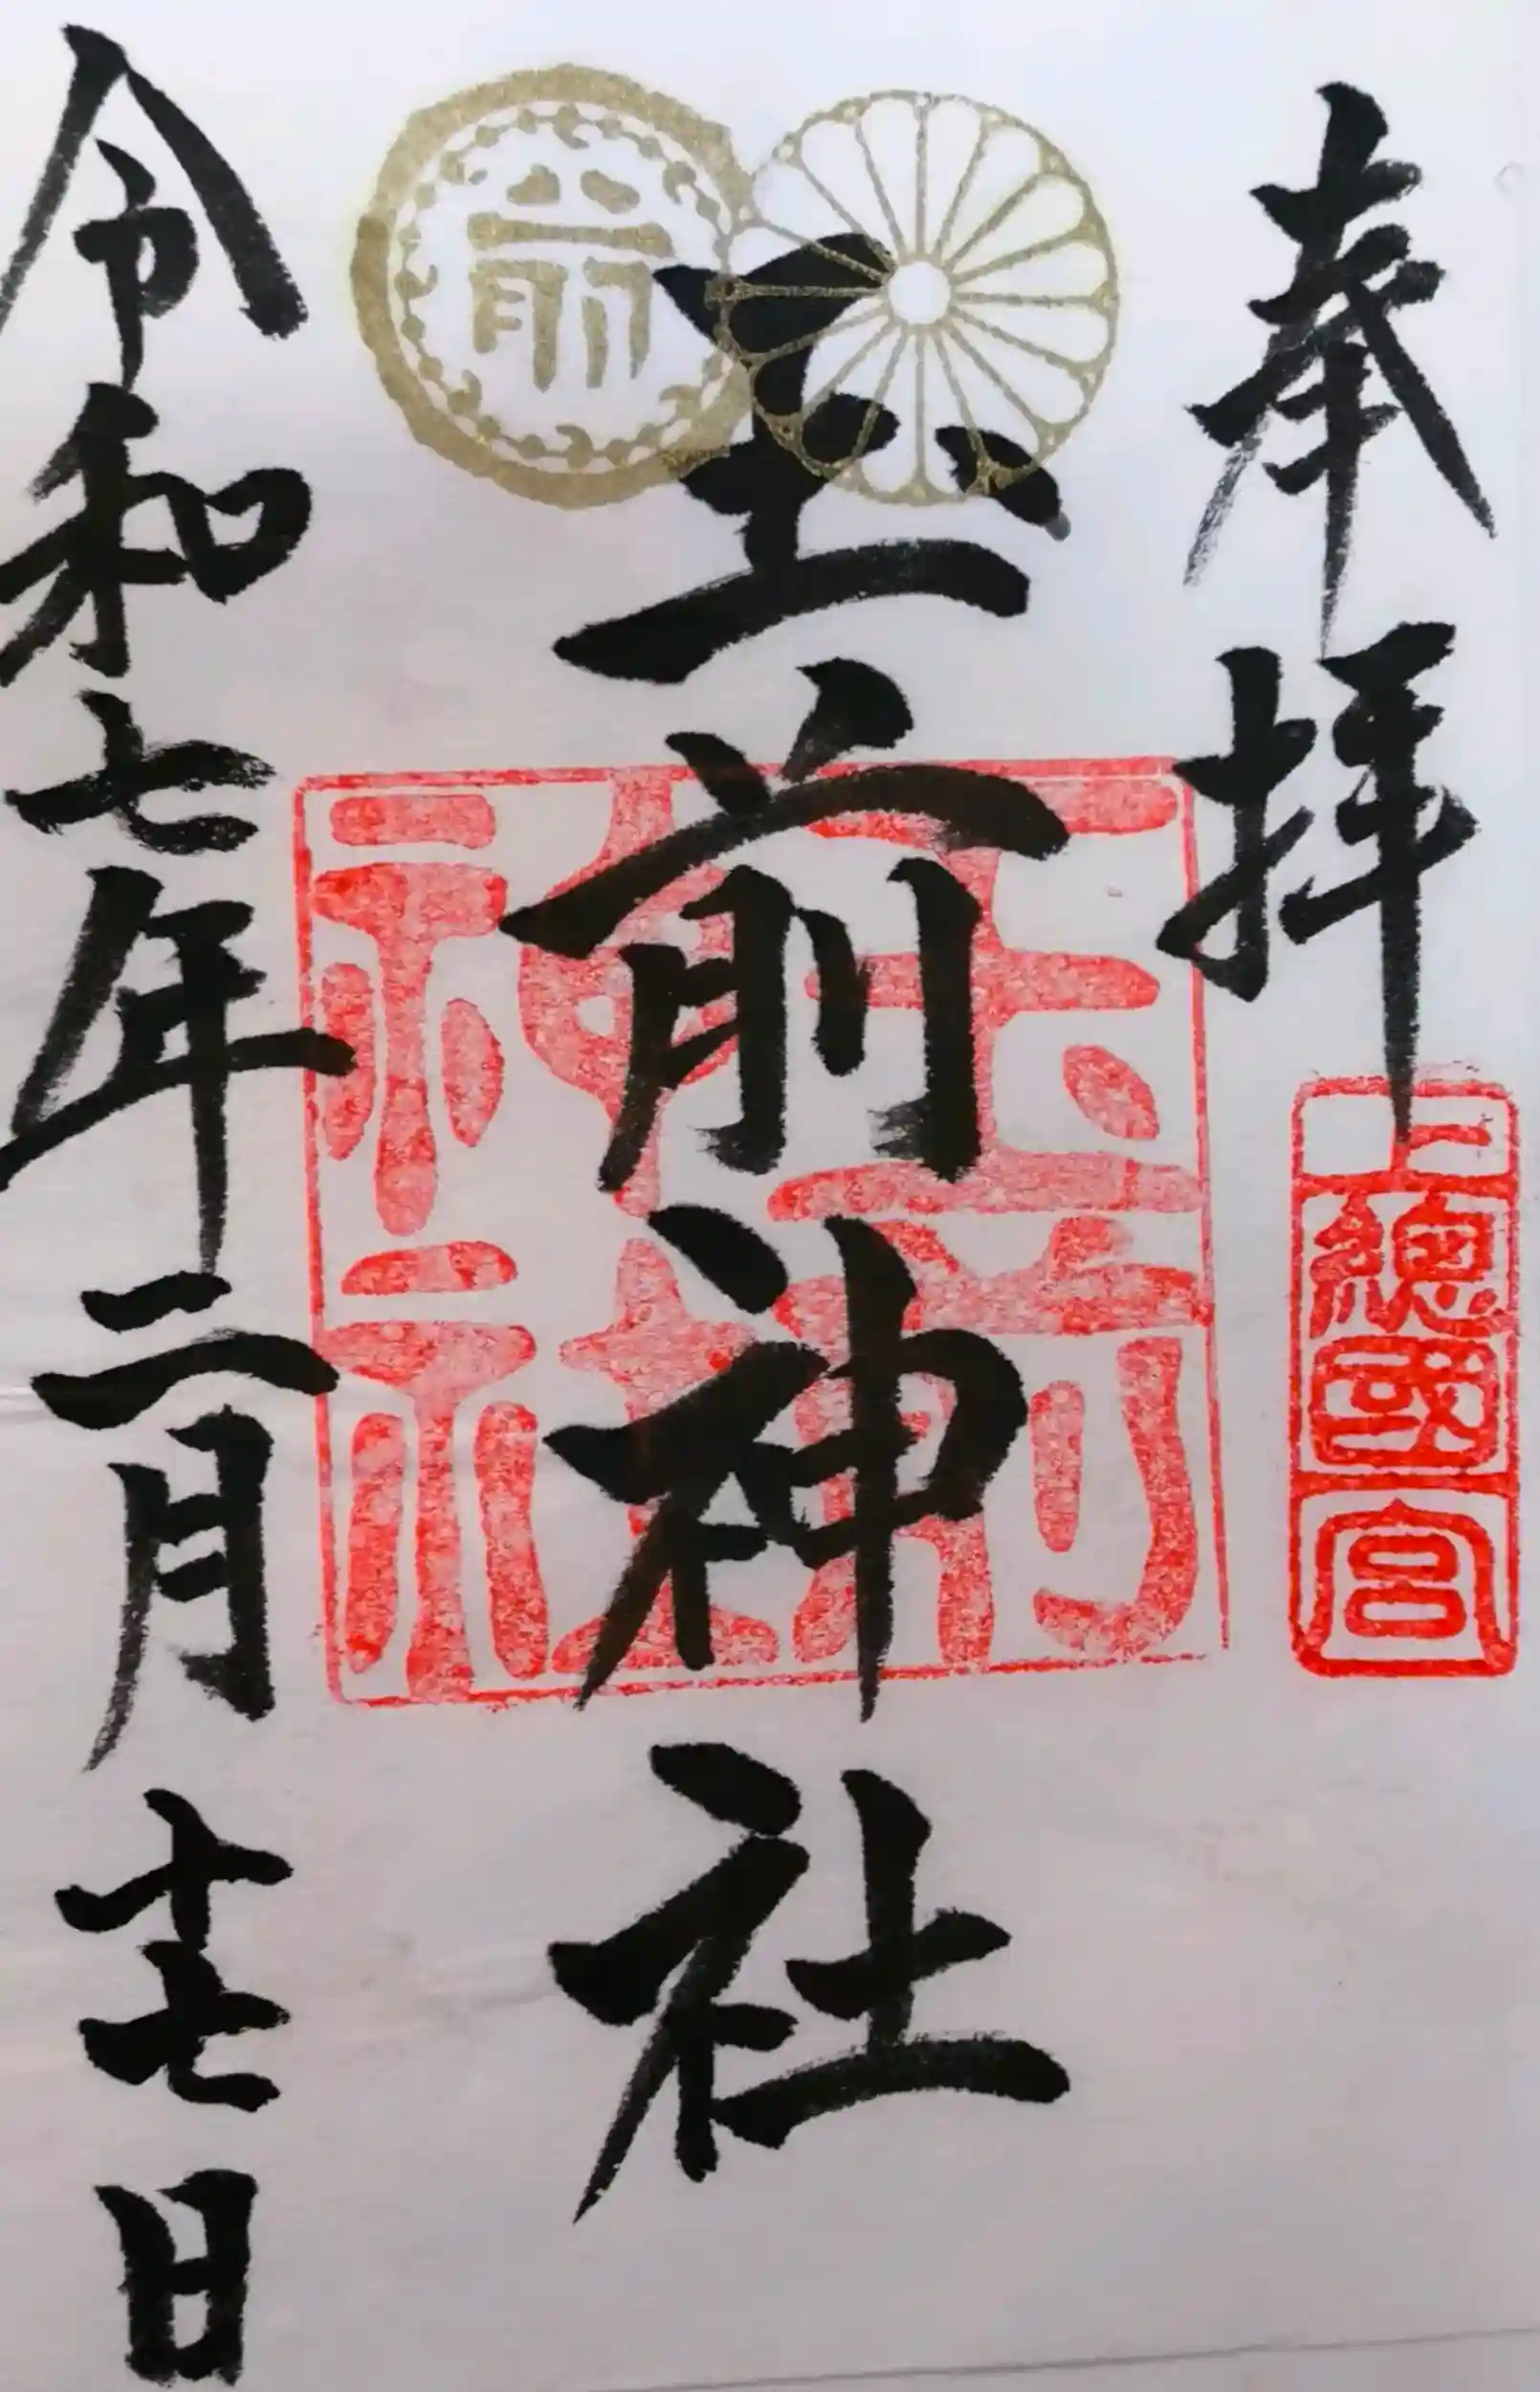 奉拝
上総國一宮
玉前神社
玉前神社
前
令和七年二月十七日